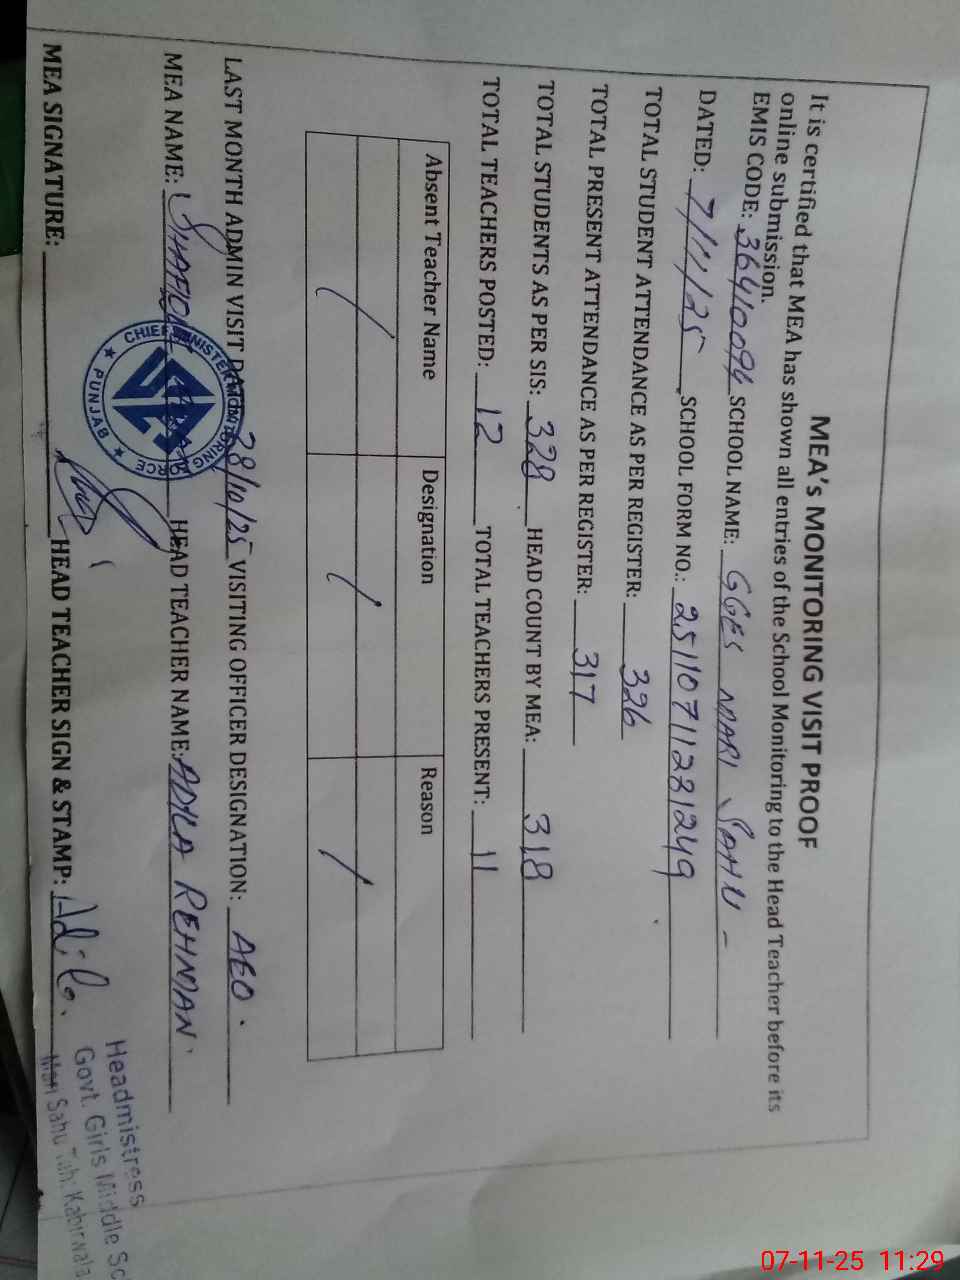 MEA's MONITORING VISIT PROOF
It is certified that MEA has shown all entries of the School Monitoring to the Head Teacher before its
online submission.
EMIS CODE: 36410094 SCHOOL NAME: GGES MARI SAHU -
DATED: 7/11/25 SCHOOL FORM NO.: 25110711281249
TOTAL STUDENT ATTENDANCE AS PER REGISTER: 326
TOTAL PRESENT ATTENDANCE AS PER REGISTER: 317
TOTAL STUDENTS AS PER SIS: 328 HEAD COUNT BY MEA: 318
TOTAL TEACHERS POSTED: 12 TOTAL TEACHERS PRESENT: 11
Absent Teacher Name Designation Reason
/ / /
LAST MONTH ADMIN VISIT DATE 28/10/25 VISITING OFFICER DESIGNATION: AEO.
MEA NAME: HEAD TEACHER NAME: ADILA REHMAN.
CHIEF MINISTER MONITORING FORCE
PUNJAB
MEA SIGNATURE: HEAD TEACHER SIGN & STAMP: Adila.
Headmistress
Govt. Girls Middle Sc
Mari Sahu Teh: Kabirwala
07-11-25 11:29